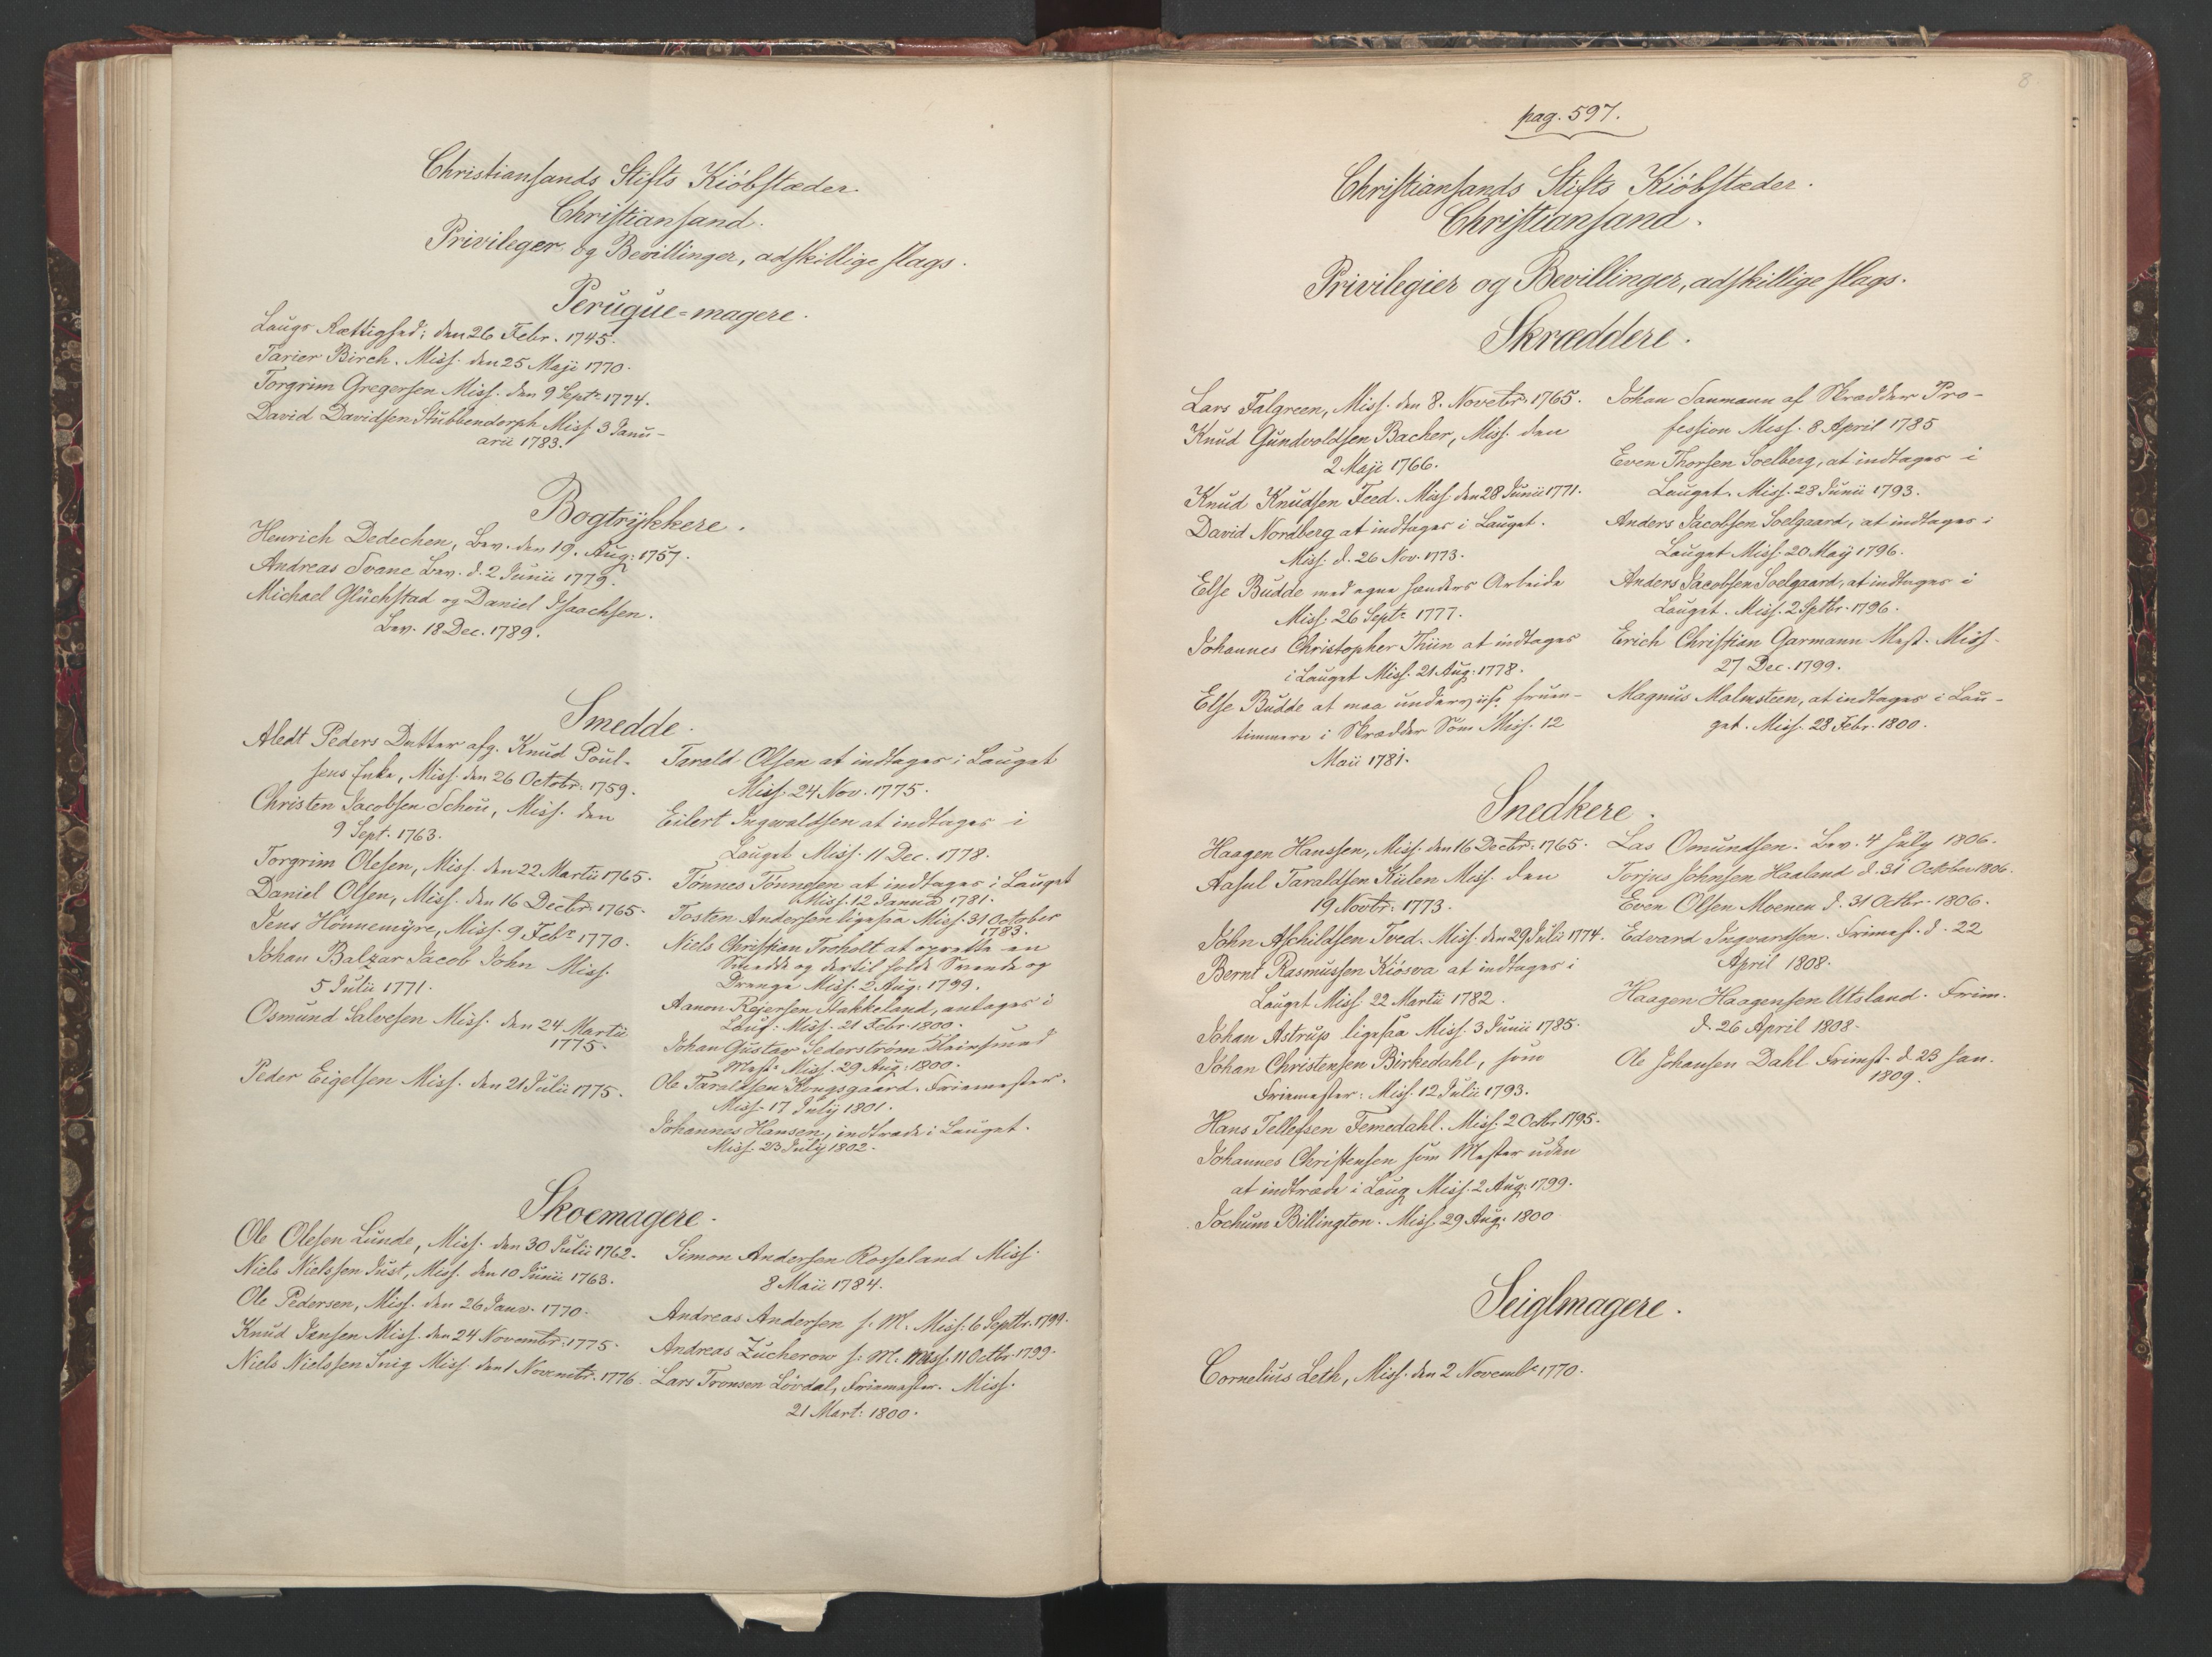 Christiansands Stifts Kiöbstæder.
Christiansand.
Privileger og Bevillinger, adskillige slags.
Peruque-magere.
Laugs Rettighed; den 26 Febr. 1745.
Tarier Birch. Miss. den 25 Maji 1770.
Torgrim Gregersen Miss. den 9 Septr 1774.
David Davidsen Stubbendorph Miss. 3 Janu-
arii 1783.
Bogtrÿkkere.
Henrich Dedechen, Bev. den 19. Aug: 1757.
Andreas Svane Bev. d. 2 Junii 1779.
Michael Glückstad og Daniel Isaachsen.
Bev. 18 Dec. 1789.
Smedde.
Aledt Peders Datter afg. Knud Poul-
sens Enke, Miss. den 26 Octobr: 1759.
Christen Jacobsen Schou, Miss. den
9 Sept. 1763.
Torgrim Olesen, Miss. den 22 Martii 1765.
Daniel Olsen, Miss. den 16 Decbr 1765.
Jens Hönnemÿre, Miss. 9 Febr 1770.
Johan Balzar Jacob John Miss.
5 Julii 1771.
Osmund Salvesen Miss. den 24 Martii
1775.
Peder Eigelsen Miss. den 21 Julii 1775.
Tarald Olsen at indtages i Lauget
Miss. 24 Nov. 1775.
Eilert Ingwaldsen at indtages i
Lauget Miss. 11 Dec. 1778.
Tönnes Tönnesen at indtages i Lauget
Miss. 12 Janua 1781.
Tosten Andersen ligesaa Miss. 31 October
1783.
Niels Christian Troholt at oprette en
Smedde og dertil holde Svende og
Drenge Miss. 2 Aug: 1799.
Aanon Reiersen Stakkeland, antages i
Laug: Miss. 21 Febr. 1800.
Johan Gustav Sederström Kleinsmed
Mest. Miss. 29 Aug: 1800.
Ole Taraldsen Kongsgaard. Friemester.
Miss. 17 July 1801.
Johannes Hansen, indtræde i Lauget.
Miss. 23 July 1802.
Skoemagere.
Ole Olesen Lunde, Miss. den 30 Julii 1762.
Niels Nielssen Just, Miss. den 10 Junii 1763.
Ole Pedersen, Miss. den 26 Janv. 1770.
Knud Jensen Miss. den 24 Novembr: 1775.
Niels Nielssen Snig Miss. den 1 Novembr. 1776.
Simon Andersen Rosseland Miss.
8 Maii 1784.
Andreas Andersen s: M. Miss: 6 Septbr. 1799.
Andreas Zucherow s: M. Miss. 11 Octbr. 1799.
Lars Tronsen Lövdal, Friemester. Miss.
21 Mart: 1800.
8.
pag. 597.
Christiansands Stifts Kiöbstæder.
Christiansand.
Privilegier og Bevillinger, adskillige slags.
Skræddere.
Lars Falgreen, Miss. den 8. Novebr. 1765.
Knud Gundvoldsen Bacher, Miss. den
2 Maji 1766.
Knud Knudsen Feed. Miss. den 28 Junii 1771.
David Nordberg at indtages i Lauget.
Miss: d. 26 Nov. 1773.
Else Budde med egne Hænders Arbeide
Miss: 26 Septr 1777.
Johannes Christopher Thiin at indtages
i Lauget Miss. 21 Aug: 1778.
Else Budde at maa underviise fruen-
timmere i Skrædder Söm Miss. 12
Maii 1781.
Johan Saumann af Skrædder Pro-
fession Miss. 8 April 1785
Even Thorsen Soelberg, at indtages i
Lauget. Miss. 28 Junii 1793.
Anders Jacobsen Soelgaard, at indtages i
Lauget Miss. 20 Maÿ 1796.
Anders Jacobsen Soelgaard, at indtages i
Lauget. Miss. 2 Septbr. 1796.
Erich Christian Garmann Mest. Miss.
27 Dec. 1799.
Magnus Malmsteen, at indtages i Lau-
get. Miss. 28 Febr. 1800.
Snedkere.
Haagen Hanssen, Miss. den 16 Decbr. 1765.
Aasul Taraldsen Kiilen Miss. den
19 Novbr: 1773.
John Aschildsen Tved. Miss. den 29 Julii 1774.
Bernt Rasmussen Kiösva at indtages i
Lauget Miss. 22 Martii 1782.
Johan Astrup ligesaa Miss. 3 Junii 1785.
Johan Christensen Birkedahl, som
Friemester: Miss. 12 Julii 1793.
Hans Tellefsen Femedahl. Miss. 2 Octbr. 1795.
Johannes Christensen som Mester uden
at indtræde i Laug Miss. 2 Aug: 1799.
Jochum Billington. Miss. 29 Aug: 1800
Las Omundsen. Bev. 4 July 1806.
Torjus Johnsen Haaland d. 31 October 1806.
Even Olsen Moenen d. 31 Octbr. 1806.
Edvard Ingvardsen. Frimest. d. 22
April 1808.
Haagen Haagensen Utsland. Frim.
d. 26 April 1808.
Ole Johansen Dahl Frimst. d. 23 Jan.
1809.
Seiglmagere.
Cornelius Leth, Miss. den 2 Novembr 1770.